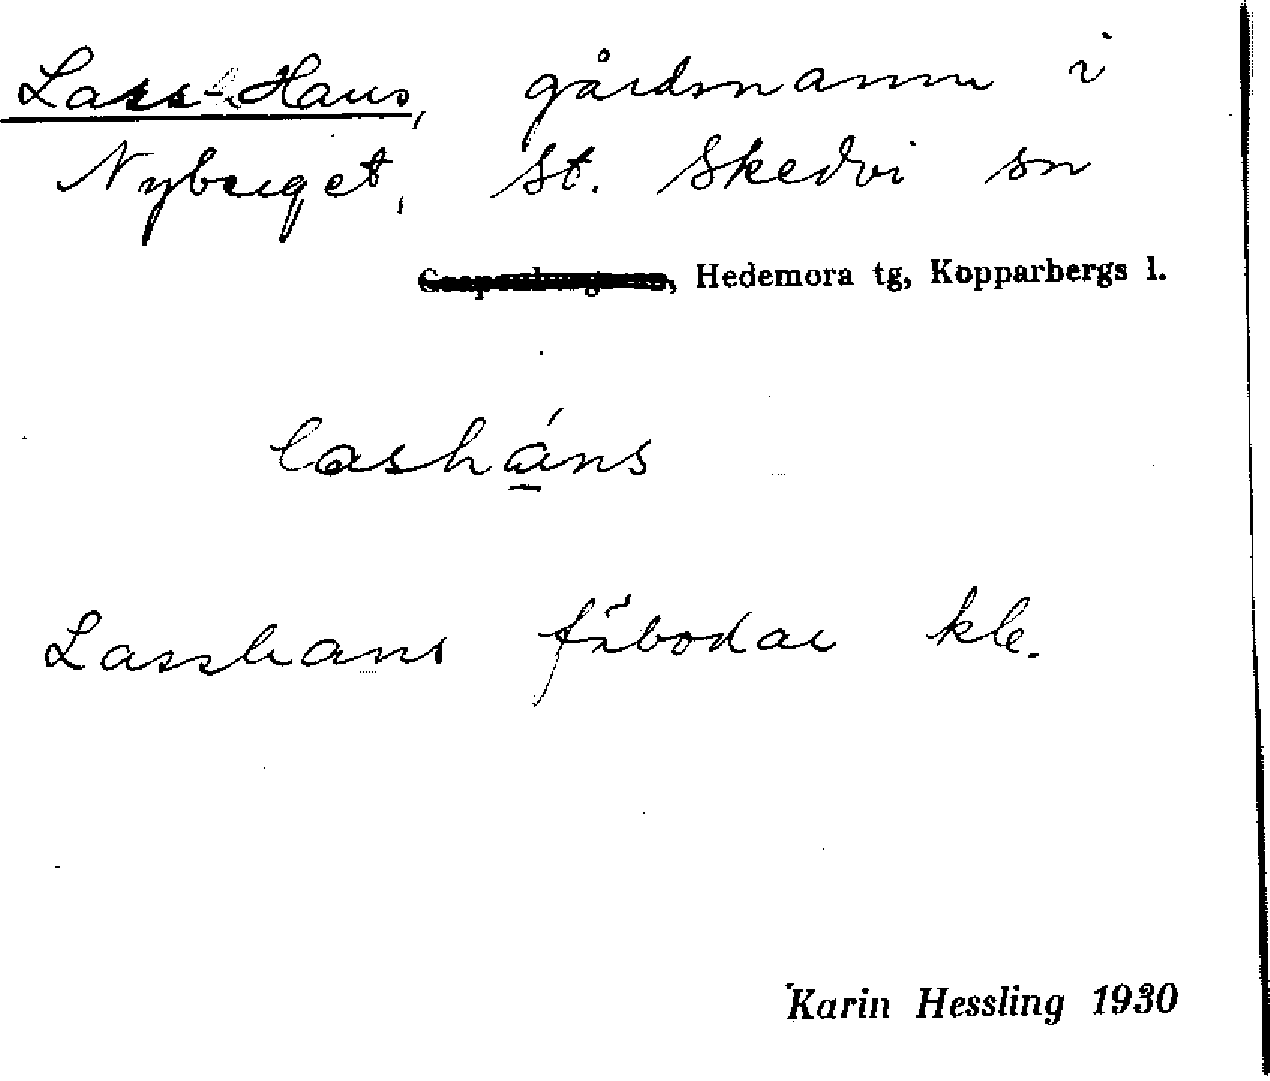 Lass-Hans, gårdsnamn i
Nyberget, St. Skedvi sn
Hedemora tg, Kopparbergs l.
lasháns
Lasshans fäbodar kle.
Karin Hessling 1930